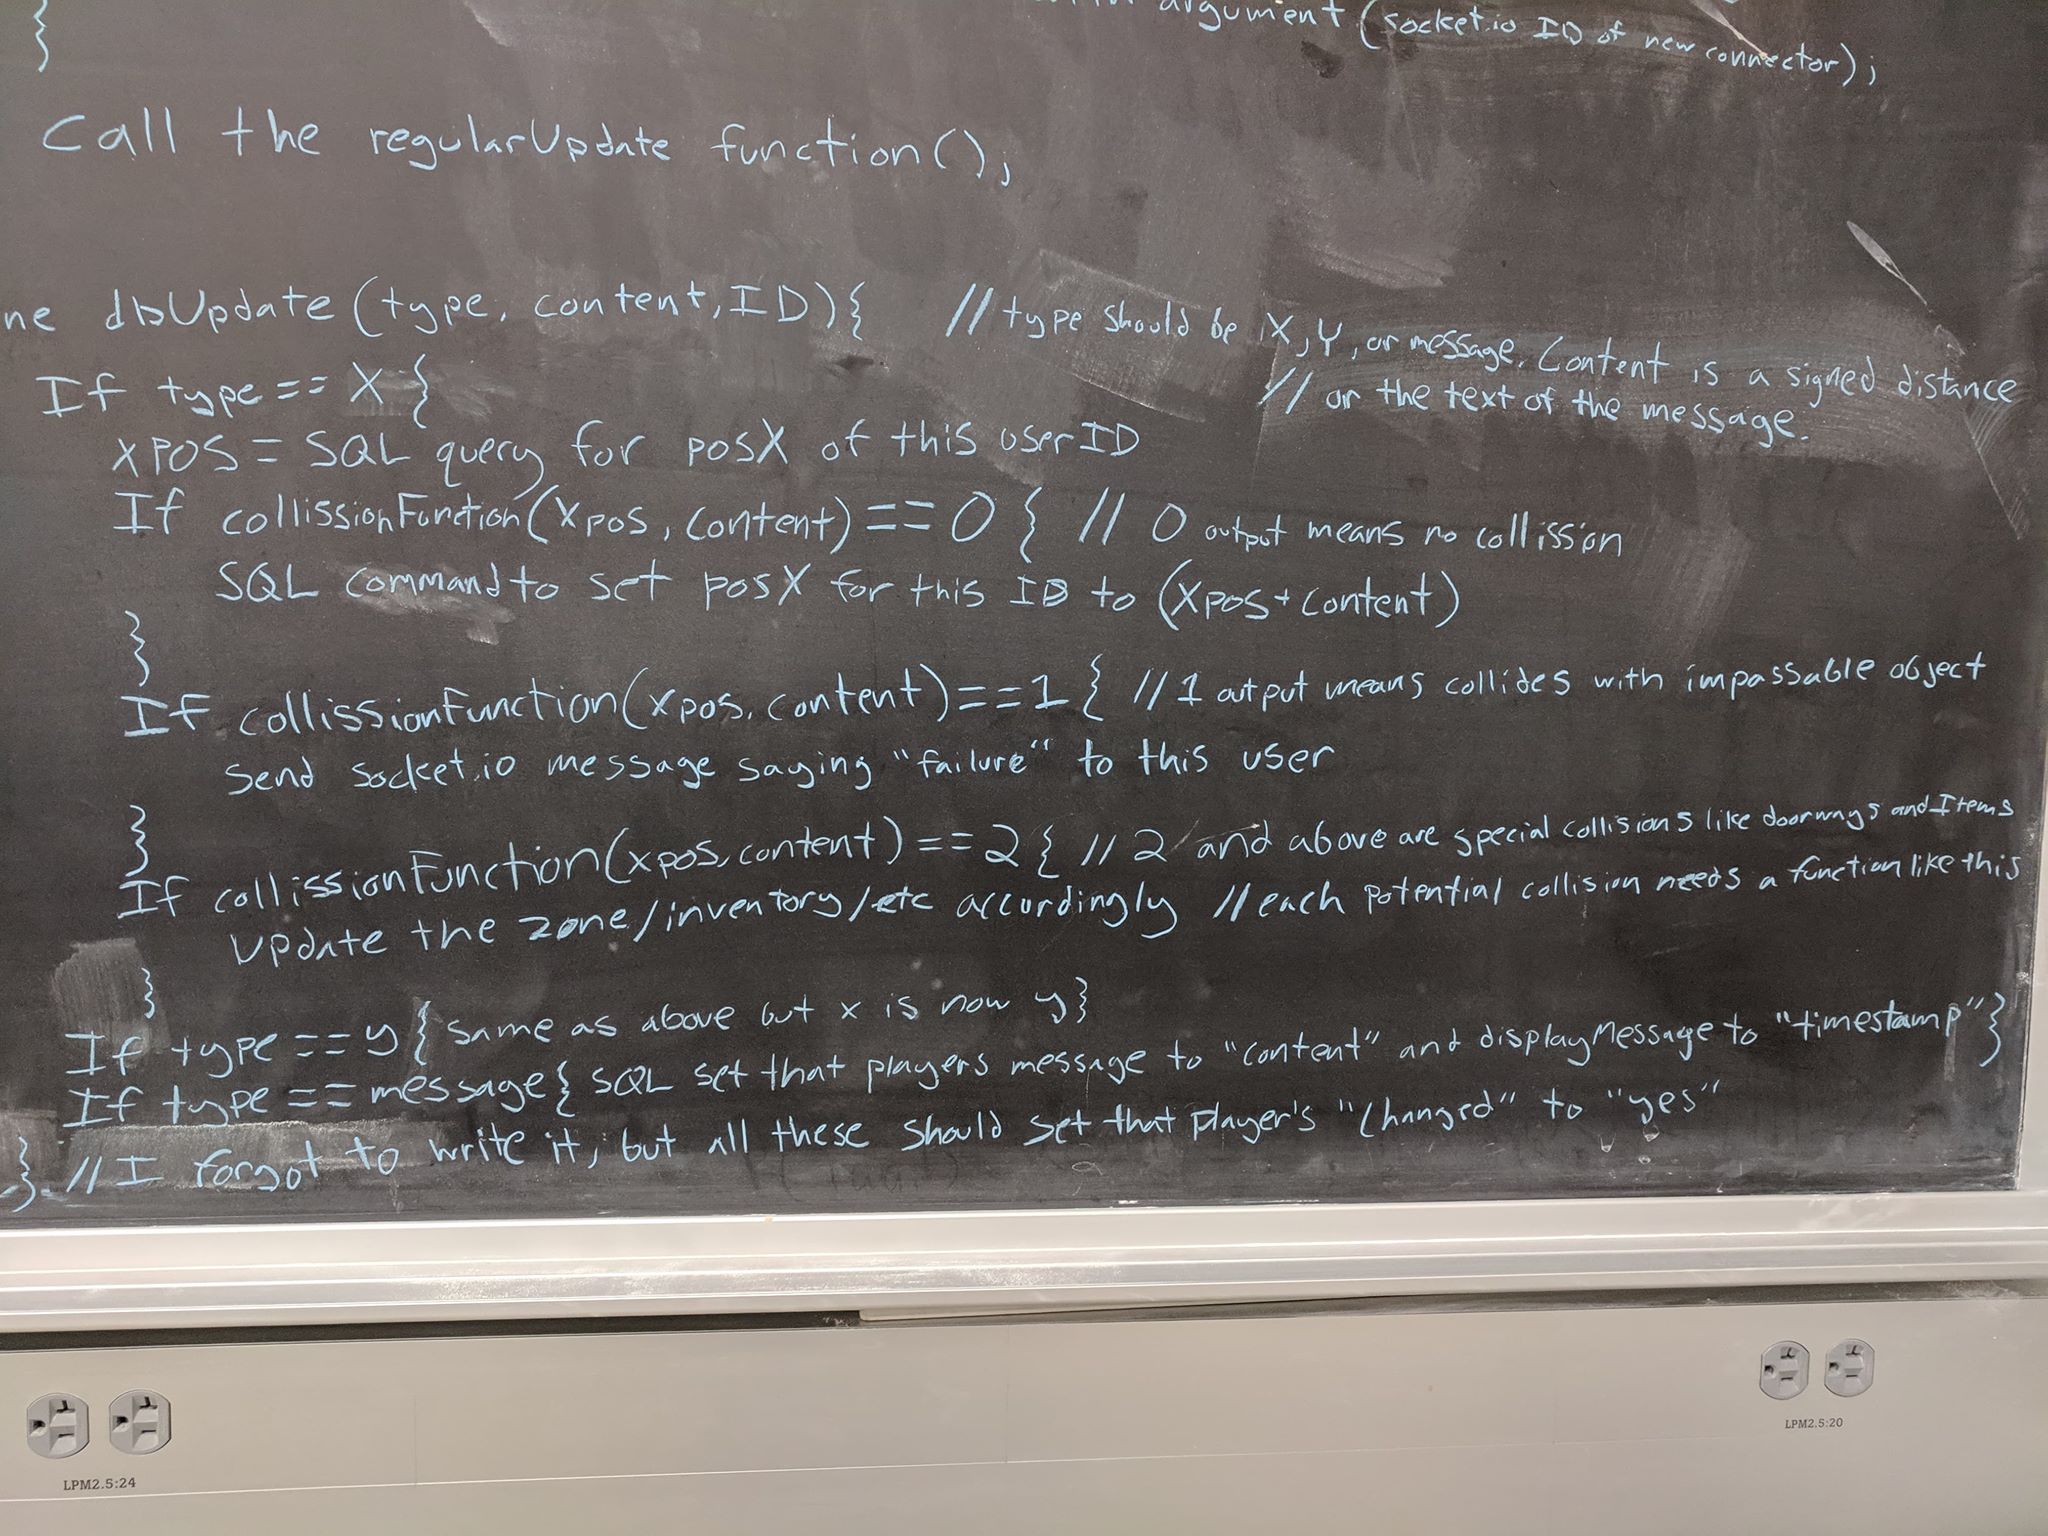 }
argument (socket.io ID of new connector);
Call the regularUpdate function();
ne dbUpdate (type, content, ID) { // type should be X, Y, or message. Content is a signed distance
// or the text of the message.
If type == X {
xPOS = SQL query for posX of this userID
If collissionFunction(xpos, content) == 0 { // 0 output means no collission
SQL command to set posX for this ID to (xpos + content)
}
If collissionFunction(xpos, content) == 1 { // 1 output means collides with impassable object
Send socket.io message saying "failure" to this user
}
If collissionFunction(xpos, content) == 2 { // 2 and above are special collisions like doorways and Items
Update the zone/inventory/etc accordingly // each potential collision needs a function like this
}
If type == y { same as above but x is now y }
If type == message { SQL set that players message to "content" and displayMessage to "timestamp" }
} // I forgot to write it, but all these should set that player's "changed" to "yes"
LPM2.5:24
LPM2.5:20